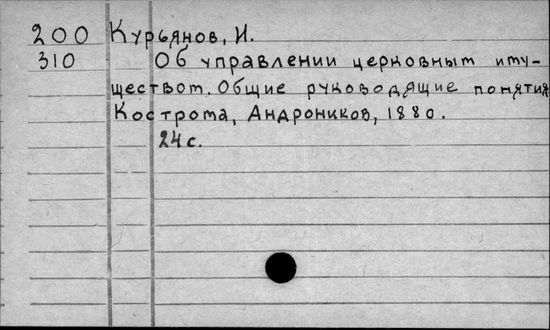 200 Курьянов, И.
310 Об управлении церковным иму-
ществом. Общие руководящие понятия
Кострома, Андроников, 1880.
24 с.